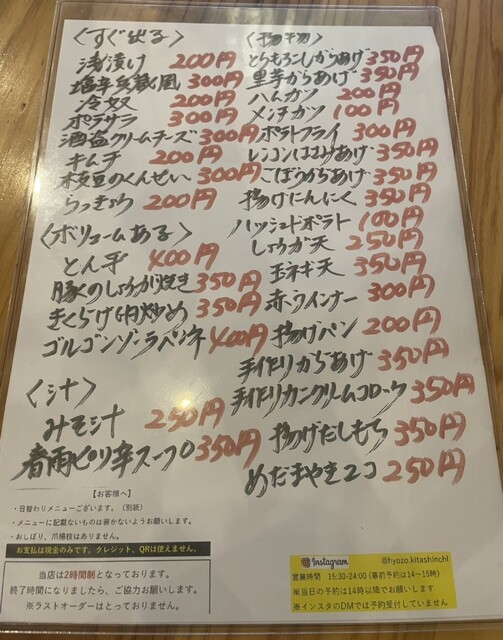 〈すぐ出る〉
浅漬け 200円
塩辛兵蔵風 300円
冷奴 200円
ポテサラ 300円
酒盗クリームチーズ 300円
キムチ 200円
枝豆のくんせい 300円
らっきょう 200円
〈ボリュームある〉
とん平 400円
豚のしょうが焼き 350円
きくらげ肉炒め 350円
ゴルゴンゾーラペンネ 400円
〈汁〉
みそ汁 250円
春雨ピリ辛スープ 350円
〈揚物〉
とうもろこしからあげ 350円
里芋からあげ 350円
ハムカツ 200円
メンチカツ 100円
ポテトフライ 300円
レンコンはさみあげ 350円
ごぼうからあげ 350円
揚げにんにく 350円
ハッシュドポテト 100円
しょうが天 250円
玉ネギ天 350円
赤ウインナー 300円
揚げパン 200円
手作りからあげ 350円
手作りカニクリームコロッケ 350円
揚げだしもち 350円
めだまやき2コ 250円
【お客様へ】
・日替わりメニューございます。（別紙）
・メニューに記載ないものは書かないようお願いします。
・おしぼり、爪楊枝はありません。
お支払は現金のみです。クレジット、QRは使えません。
当店は2時間制となっております。
終了時間になりましたら、ご協力お願いします。
※ラストオーダーはとっておりません。
Instagram @hyozo.kitashinchi
営業時間 15:30-24:00（事前予約は14〜15時）
※当日の予約は14時以降でお願いします
※インスタのDMでは予約受付していません